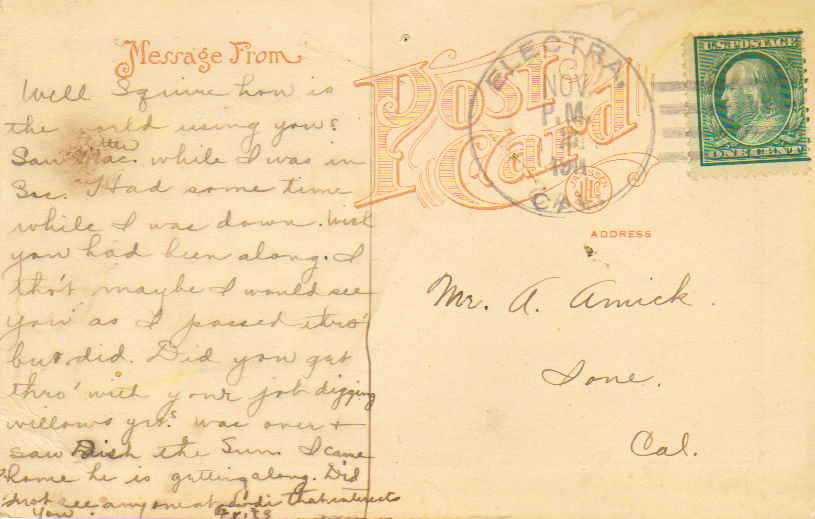 Message From
Well Squire how is
the world using you?
Saw Mac. while I was in
Sac. Had some time
while I was down. Wish
you had been along. I
tho't maybe I would see
you as I passed thro'
but did. Did you get
thro' with your job digging
willows yet? Was over &
saw Dick the Sun. I came
home he is getting along. Did
not see anyone at Lodi that interests
you.
Fritz
Post Card
ELECTRA,
NOV
P.M.
1911
CAL.
U.S. POSTAGE
ONE CENT
ADDRESS
Mr. A. Amick.
Ione.
Cal.